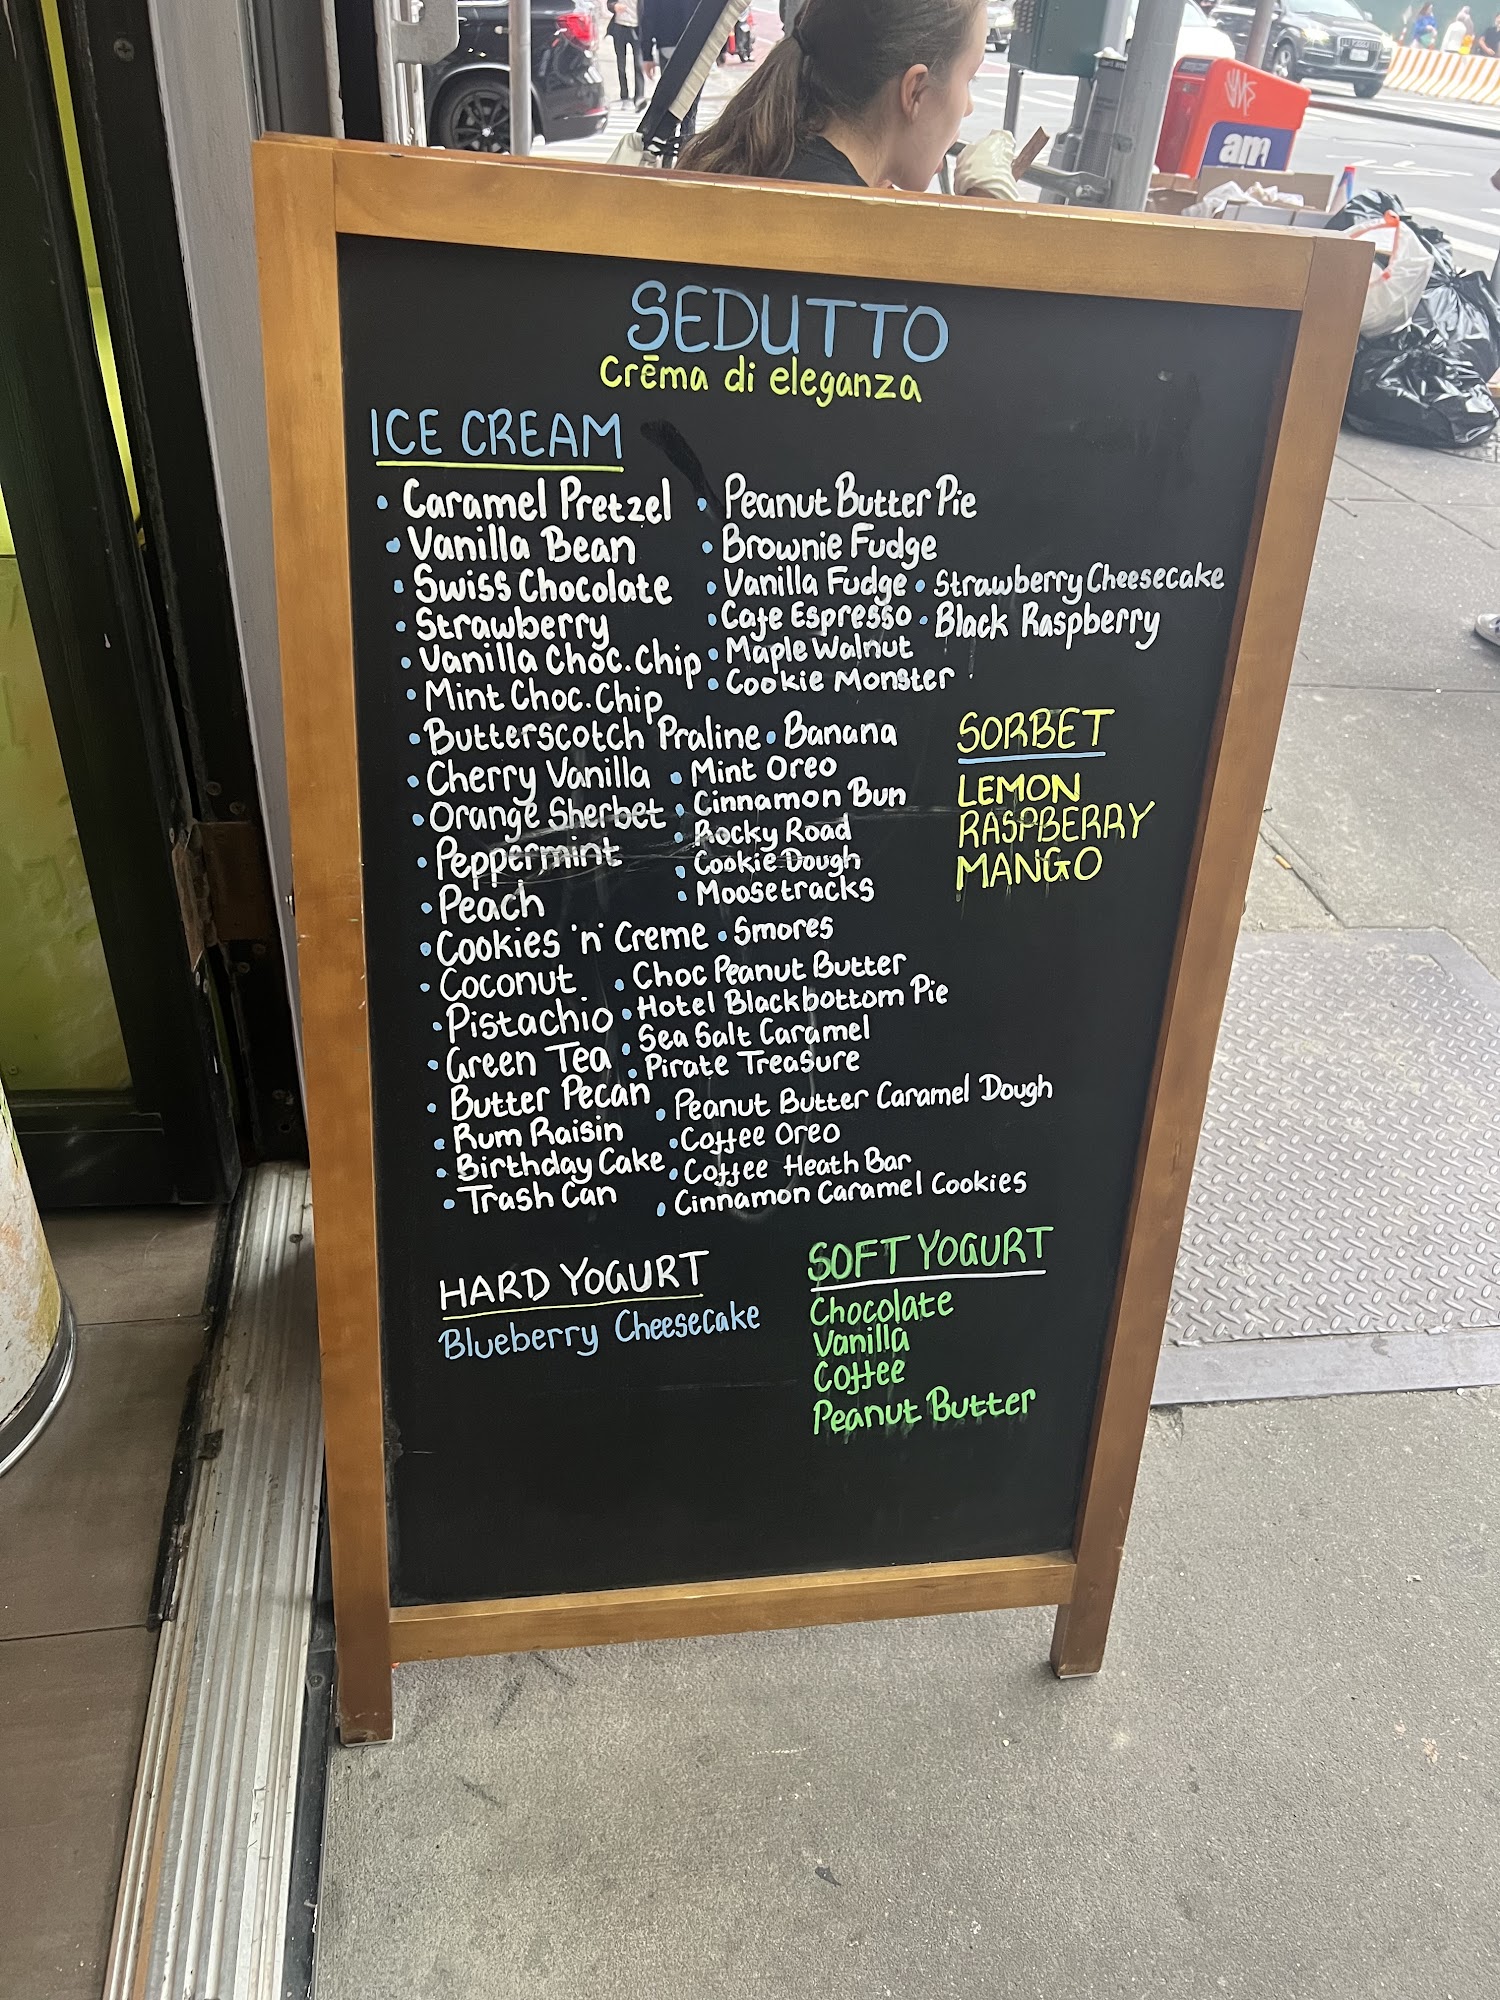 am
SEDUTTO
Crēma di eleganza
ICE CREAM
• Caramel Pretzel • Peanut Butter Pie
• Vanilla Bean • Brownie Fudge
• Swiss Chocolate • Vanilla Fudge • Strawberry Cheesecake
• Strawberry • Cafe Espresso • Black Raspberry
• Vanilla Choc. Chip • Maple Walnut
• Mint Choc. Chip • Cookie Monster
• Butterscotch Praline • Banana
• Cherry Vanilla • Mint Oreo
• Orange Sherbet • Cinnamon Bun
• Peppermint • Rocky Road
• Peach • Cookie Dough
• Moosetracks
• Cookies 'n' Creme • Smores
• Coconut • Choc Peanut Butter
• Pistachio • Hotel Blackbottom Pie
• Green Tea • Sea Salt Caramel
• Pirate Treasure
• Butter Pecan • Peanut Butter Caramel Dough
• Rum Raisin • Coffee Oreo
• Birthday Cake • Coffee Heath Bar
• Trash Can • Cinnamon Caramel Cookies
SORBET
LEMON
RASPBERRY
MANGO
HARD YOGURT
Blueberry Cheesecake
SOFT YOGURT
Chocolate
Vanilla
Coffee
Peanut Butter